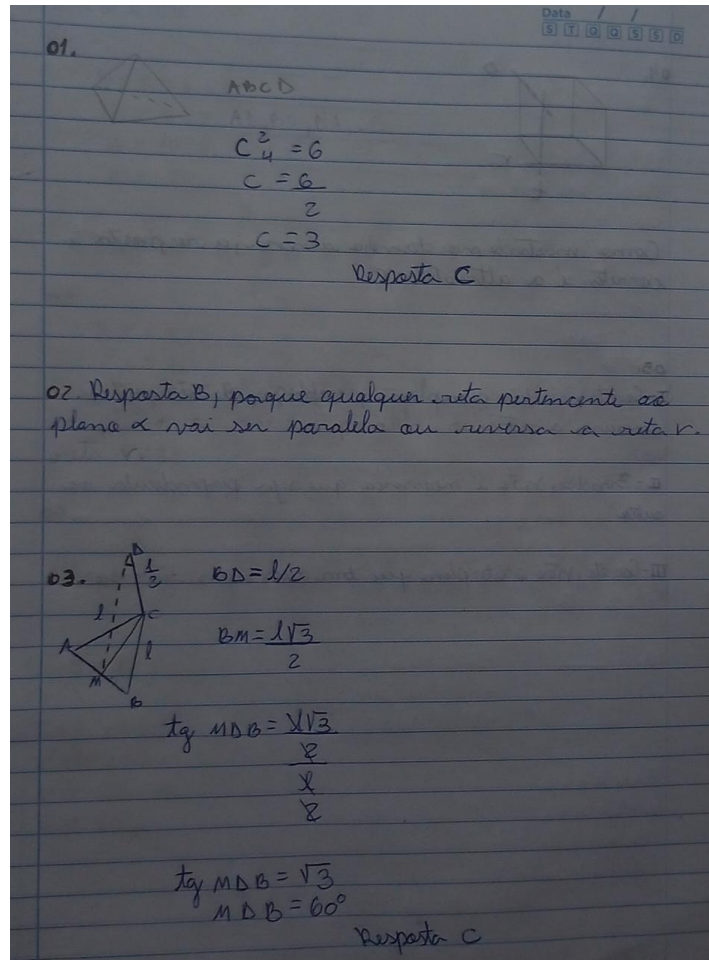 Data / /
S T Q Q S S D
01.
ABCD
C²₄ = 6
C = 6/2
C = 3
Resposta C
02. Resposta B, porque qualquer reta pertencente ao
plano α vai ser paralela ou reversa a reta r.
03.
D
l/2
l
C
A
l
M
B
BD = l/2
BM = l√3/2
tg MDB = l√3/2 / l/2
tg MDB = √3
MDB = 60°
Resposta C